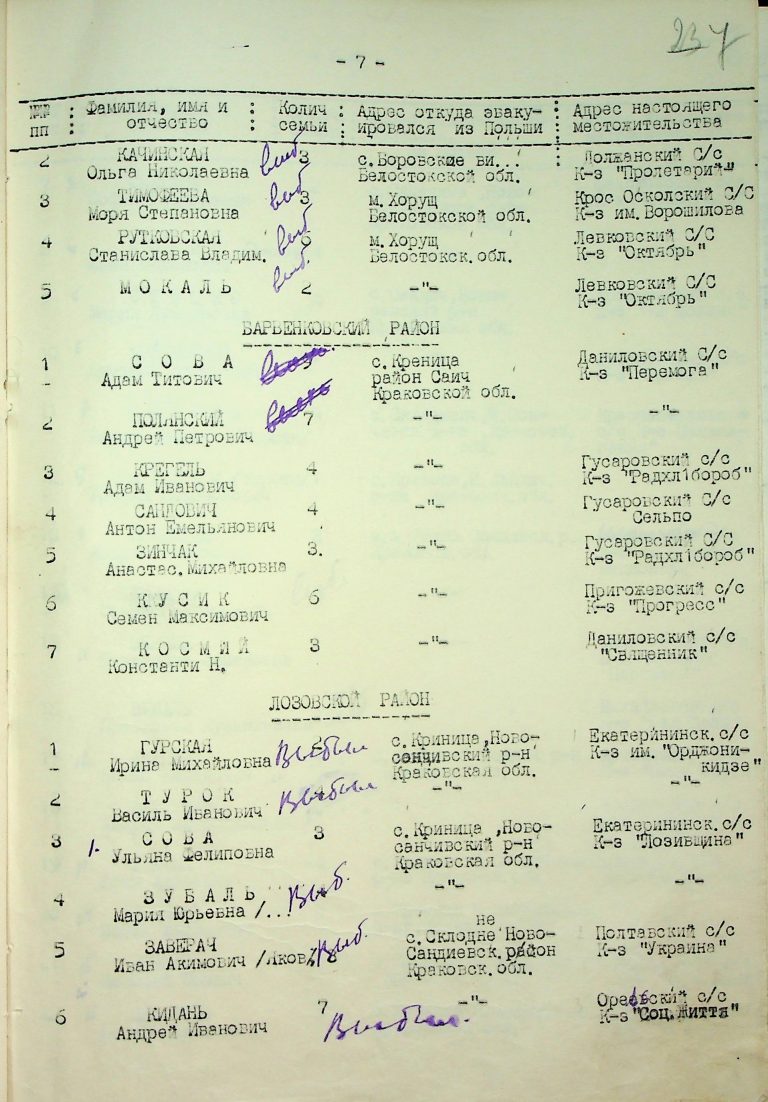 237
- 7 -
№№ : Фамилия, имя и : Колич : Адрес откуда эваку- : Адрес настоящего
пп : отчество : семьи : ировался из Польши : местожительства
2 КАЧИНСКАЯ выб 3 с. Боровские ви... : Должанский С/с
Ольга Николаевна Белостокской обл. К-з "Пролетарий"
3 ТИМОФЕЕВА выб 3 м. Хорущ Крос Осколский С/С
Моря Степановна Белостокской обл. К-з им. Ворошилова
4 РУТКОВСКАЯ выб м. Хорущ Левковский С/С
Станислава Владим. Белостокск. обл. К-з "Октябрь"
5 М О К А Л Ь выб. 2 -"- Левковский С/С
К-з "Октябрь"
БАРВЕНКОВСКИЙ РАЙОН
1 С О В А с. Креница Даниловский С/с
Адам Титович район Саич К-з "Перемога"
Краковской обл.
2 ПОЛЯНСКИЙ 7 -"- -"-
Андрей Петрович
3 КРЕГЕЛЬ 4 -"- Гусаровский с/с
Адам Иванович К-з "Радхлiбороб"
4 САНДОВИЧ 4 -"- Гусаровский С/с
Антон Емельянович Сельпо
5 ЗИНЧАК 3. -"- Гусаровский С/С
Анастас. Михайловна К-з "Радхлiбороб"
6 К У С И К 6 -"- Пригожевский с/с
Семен Максимович К-з "Прогресс"
7 К О С М И Й 3 -"- Даниловский с/с
Константи Н. "Священник"
ЛОЗОВСКОЙ РАЙОН
1 ГУРСКАЯ Выбыл с. Криница, Ново- Екатерининск. с/с
Ирина Михайловна сандивский р-н К-з им. "Орджони-
Краковская обл. кидзе"
2 Т У Р О К Выбыл -"- -"-
Василь Иванович
3 1. С О В А 3 с. Криница, Ново- Екатерининск. с/с
Ульяна Фелиповна санчивский р-н К-з "Лозивщина"
Краковская обл.
4 З У В А Л Ь Выб. -"- -"-
Мария Юрьевна /...
не
5 ЗАВЕРАЧ Выб. с. Склодне Ново- Полтавский с/с
Иван Акимович /Яков/ 8 Сандиевск. район К-з "Украина"
Краковск. обл.
6 КИДАНЬ 7 -"- с/с
Андрей Иванович Выбыл. К-з "Соц. Життя"